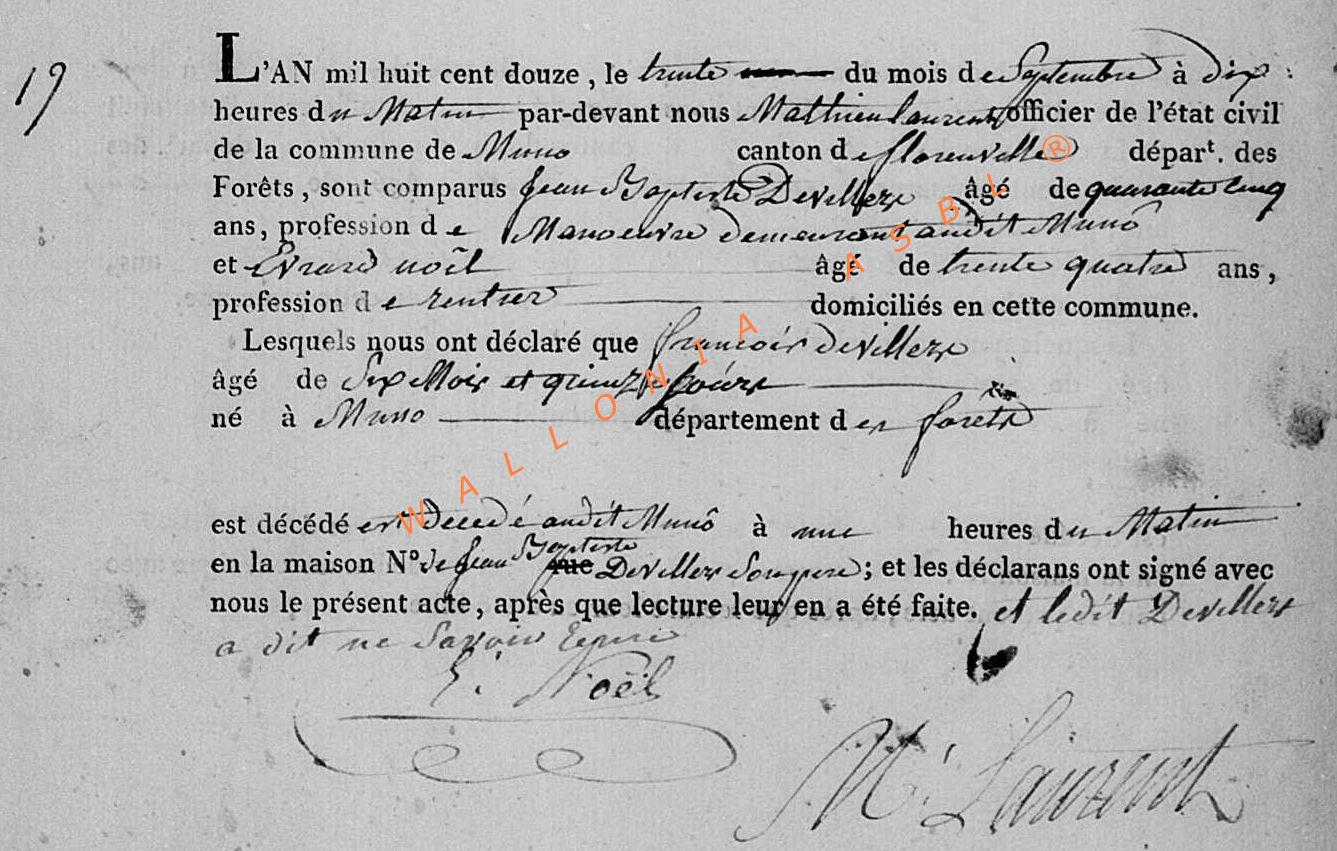 19
L'AN mil huit cent douze, le trente du mois de Septembre à dix
heures du Matin par-devant nous Mathieu Laurent officier de l'état civil
de la commune de Muno canton de florenville départ. des
Forêts, sont comparus Jean Baptiste Devillers âgé de quarante cinq
ans, profession de Manoeuvre demeurant audit Muno
et Evrard noël âgé de trente quatre ans,
profession de rentier domiciliés en cette commune.
Lesquels nous ont déclaré que francois devillers
âgé de Six Mois et quinze jours
né à Muno département des forêts
est décédé est decedé audit Muno à une heures du Matin
en la maison N° de Jean Baptiste rue Devillers Son pere; et les déclarans ont signé avec
nous le présent acte, après que lecture leur en a été faite. et ledit Devillers
a dit ne Savoir Ecrire
E. Noël
M. Laurent
WALLONIA ASBL ®